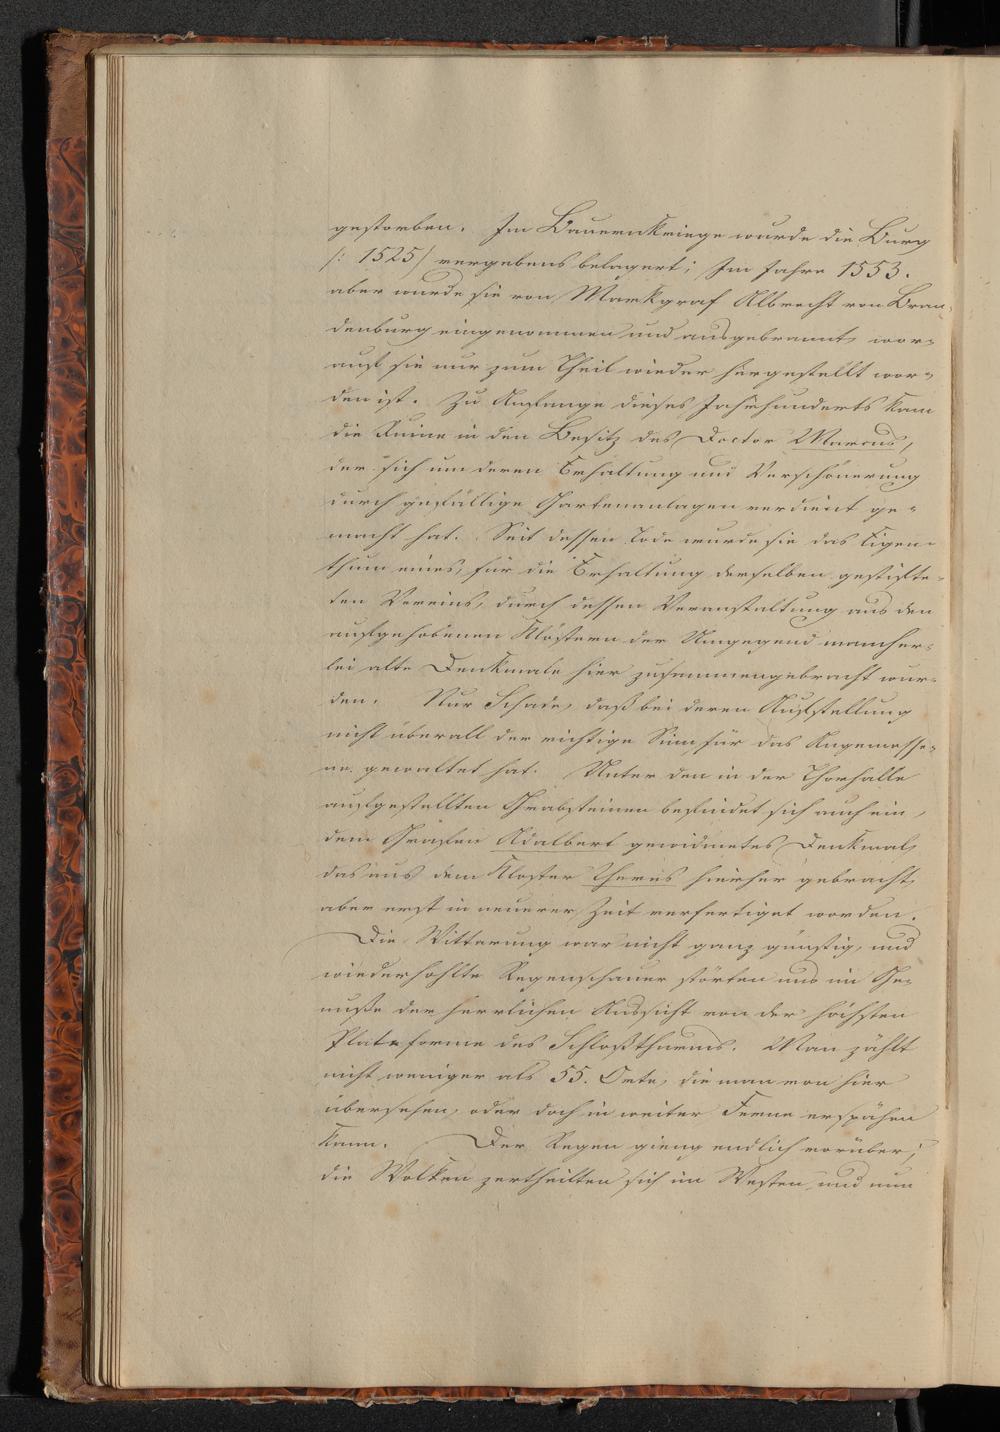 gestorben. Im Bauernkriege wurde die Burg
/: 1525/ vergebens belagert; Im Jahre 1553.
aber wurde sie von Markgraf Albrecht von Bran-
denburg eingenommen und ausgebrannt, wor-
auf sie nur zum Theil wieder hergestellt wor-
den ist. Zu Anfange dieses Jahrhunderts kam
die Ruine in den Besitz des Doctor Marcus,
der sich um deren Erhaltung und Verschönerung
durch gefällige Gartenanlagen verdient ge-
macht hat. Seit dessen Tode wurde sie das Eigen-
thum eines, für die Erhaltung derselben gestifte-
ten Vereins, durch dessen Veranstaltung aus den
aufgehobenen Klöstern der Umgegend mancher-
lei alte Denkmale hier zusammengebracht wur-
den. Nur Schade, daß bei deren Aufstellung
nicht überall der richtige Sinn für das Angemesse-
ne gewaltet hat. Unter den in der Thorhalle
aufgestellten Grabsteinen befindet sich auch ein,
dem Grafen Adalbert gewidmetes Denkmal,
das aus dem Kloster Theres hierher gebracht,
aber erst in neuerer Zeit verfertiget worden.
Die Witterung war nicht ganz günstig, und
wiederhohlte Regenschauer störten uns im Ge-
nuße der herrlichen Aussicht von der höchsten
Plateforme des Schloßthurms. Man zählt
nicht weniger als 55. Orte, die man von hier
übersehen, oder doch in weiter Ferne erspähen
kann. Der Regen gieng endlich vorüber;
die Wolken zertheilten sich im Westen, und nun